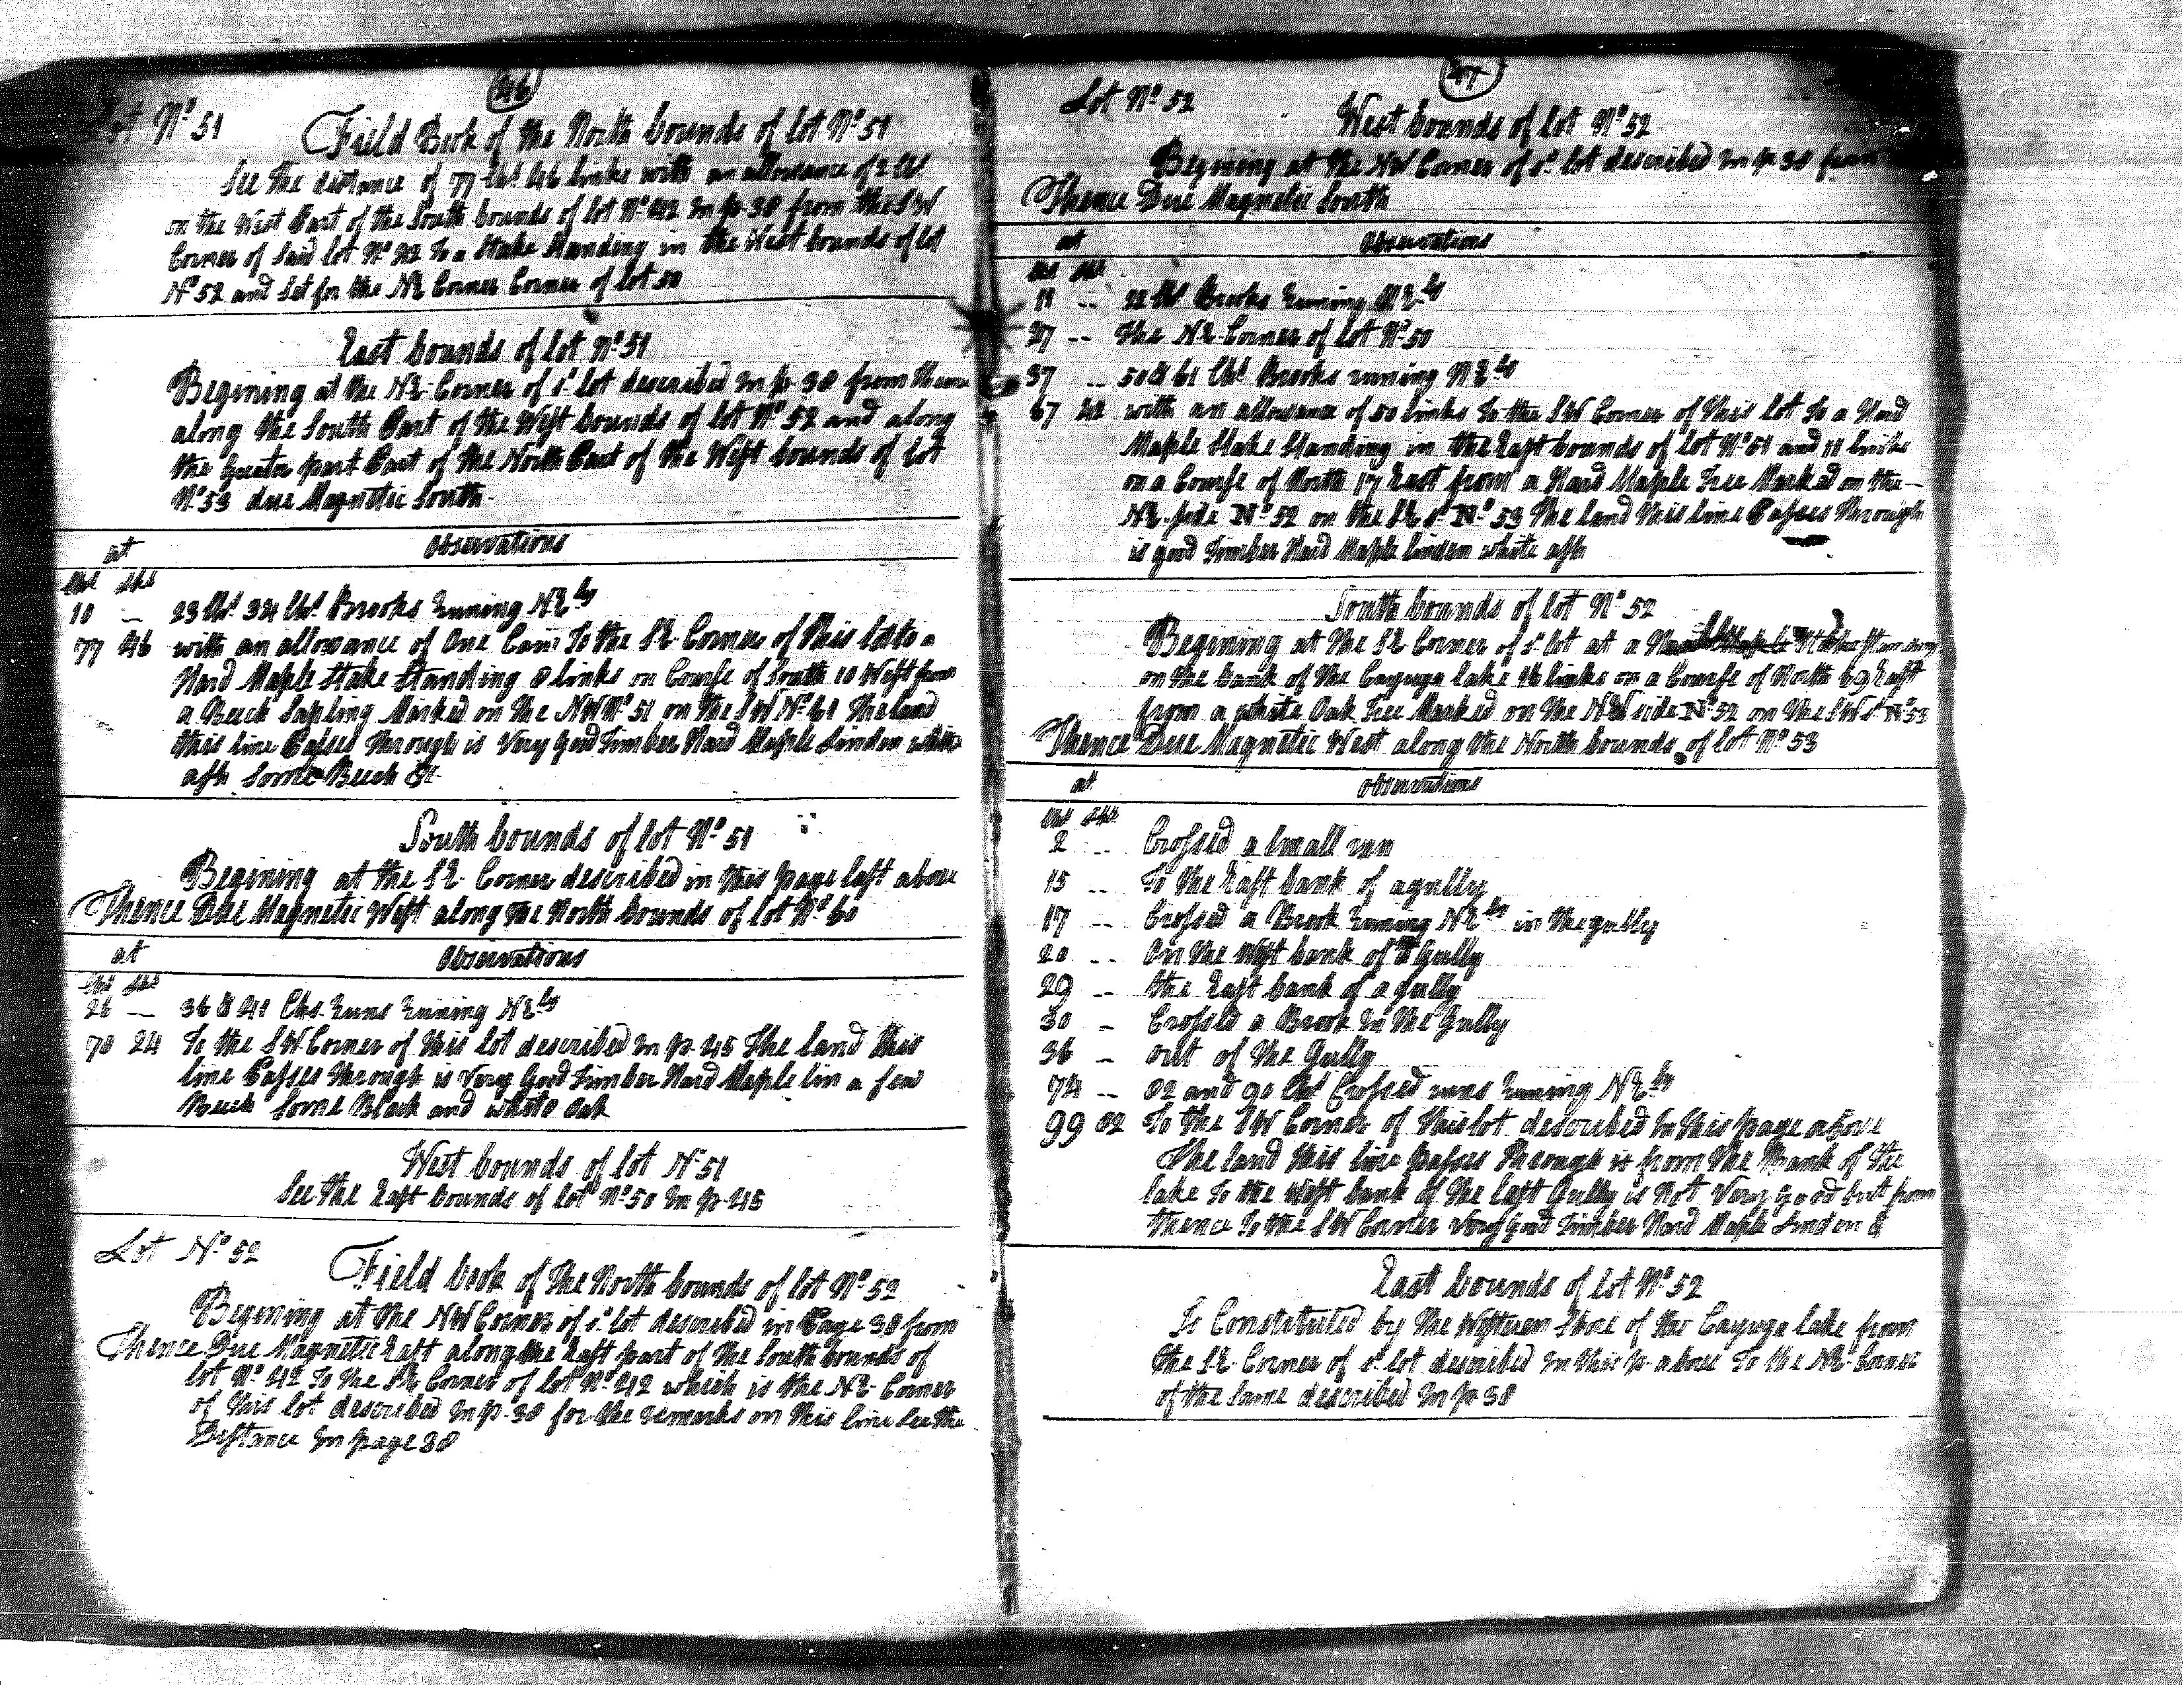 46
Lot No 51
Field Book of the North bounds of lot No 51
See the distance of 77 Chs 46 links with an allowance of 2 Chs
on the West Part of the South bounds of lot No 42 In p 38 from the SW
Corner of Said lot No 42 To a Stake Standing in the West bounds of lot
No 52 and Set for the NE Corner Corner of lot 50
East bounds of lot No 51
Begining at the NE Corner of sd lot described In p 38 from thence
along the South Part of the West bounds of lot No 52 and along
the Greater part Part of the North Part of the West bounds of lot
No 53 due Magnetic South
at Observations
Chs Lks
10 — 23 Chs 34 Chs Brooks Runing NEly
77 46 with an allowance of One Cain To the SE Corner of this lot to a
Hard Maple Stake Standing 8 links on Course of South 10 West from
a Beech Sapling Marked on the NW No 51 on the SW No 61 The land
this line Passes through is Very Good Timber Hard Maple Linden white
ash Some Beech &c
South bounds of lot No 51
Begining at the SE Corner described in this page last above
Thence Due Magnetic West along the North bounds of lot No 60
at Observations
Chs Lks
26 — 36 & 41 Chs Runs Runing NEly
70 24 To the SW Corner of this lot described In p 45 The land this
line Passes through is Very Good Timber Hard Maple lin a few
Beech Some Black and white Oak
West bounds of lot No 51
See the East bounds of lot No 50 In p 45
Lot No 52
Field book of the North bounds of lot No 52
Begining at the NW Corner of sd lot described in Page 38 from
Thence Due Magnetic East along the East part of the South bounds of
lot No 42 To the SE Corner of lot No 42 which is the NE Corner
of this lot described In p 38 for the remarks on this line See the
Distance In page 38
47
Lot No 52
West bounds of lot No 52
Begining at the NW Corner of sd lot described In p 38 from
Thence Due Magnetic South
at Observations
Chs Lks
11 -- 22 Chs Brooks Runing NEly
27 -- the NE Corner of lot No 50
37 -- 50 & 61 Chs Brooks runing NEly
67 42 with an allowance of 50 links To the SW Corner of this lot To a Hard
Maple Stake Standing in the East bounds of lot No 51 and 11 links
on a Course of North 17 East from a Hard Maple Tree Marked on the —
NE side No 52 on the SE sd No 53 The land this line Passes through
is good Timber Hard Maple linden white ash
South bounds of lot No 52
Begining at the SE Corner of sd lot at a Stake Standing
on the bank of the Cayuga lake 16 links on a Course of North 69 East
from a white Oak Tree Marked on the NW side No 52 on the SW sd No 53
Thence Due Magnetic West along the North bounds of lot No 53
at observations
Chs Lks
2 -- Crossed a Small run
15 -- To the East bank of a gully
17 -- Crossed a Brook Runing NEly in the gully
20 -- On the West bank of Gully
29 -- the East bank of a gully
30 - Crossed a Brook In the Gully
36 - out of the Gully
74 -- 82 and 90 Chs Crossed runs Runing NEly
99 82 To the SW Corner of this lot described In this page above
The land this line passes through is from the Bank of the
lake To the West bank of the last Gully is Not Very good but from
thence To the SW Corner Very good Timber Hard Maple Linden &
East bounds of lot No 52
Is Constituted by the Western Shore of the Cayuga lake from
the SE Corner of sd lot described In this p above To the NE Corner
of the Same described In p 38